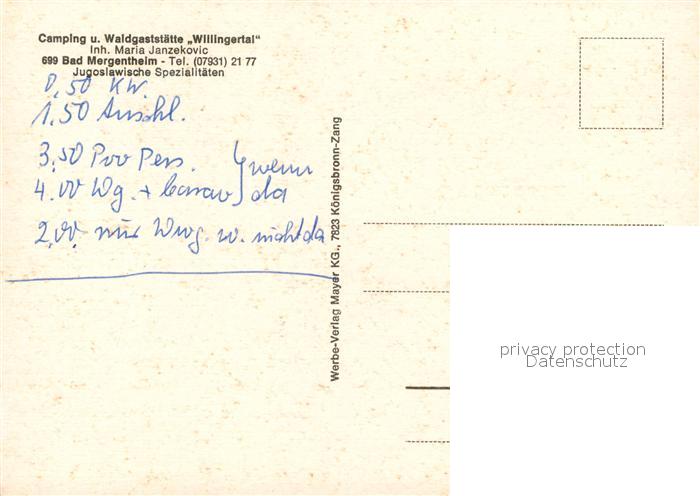 Camping u. Waldgaststätte „Willingertal"
Inh. Maria Janzekovic
699 Bad Mergentheim - Tel. (07931) 21 77
Jugoslawische Spezialitäten
0,50 KW.
1,50 Anschl.
3,50 Pro Pers. } wenn
4.00 Wg. + Carav } da
2,00 nur Wwg. w. nicht da
Werbe-Verlag Mayer KG., 7923 Königsbronn-Zang
privacy protection
Datenschutz